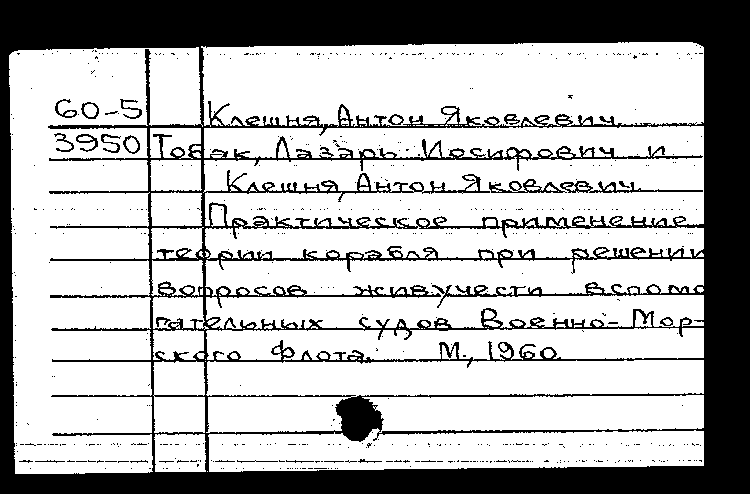 60-5 Клешня, Антон Яковлевич.
3950 Товак, Лазарь Иосифович и
Клешня, Антон Яковлевич.
Практическое применение
теории корабля при решении
вопросов живучести вспомо
гательных судов Военно-Мор-
ского Флота. М., 1960.